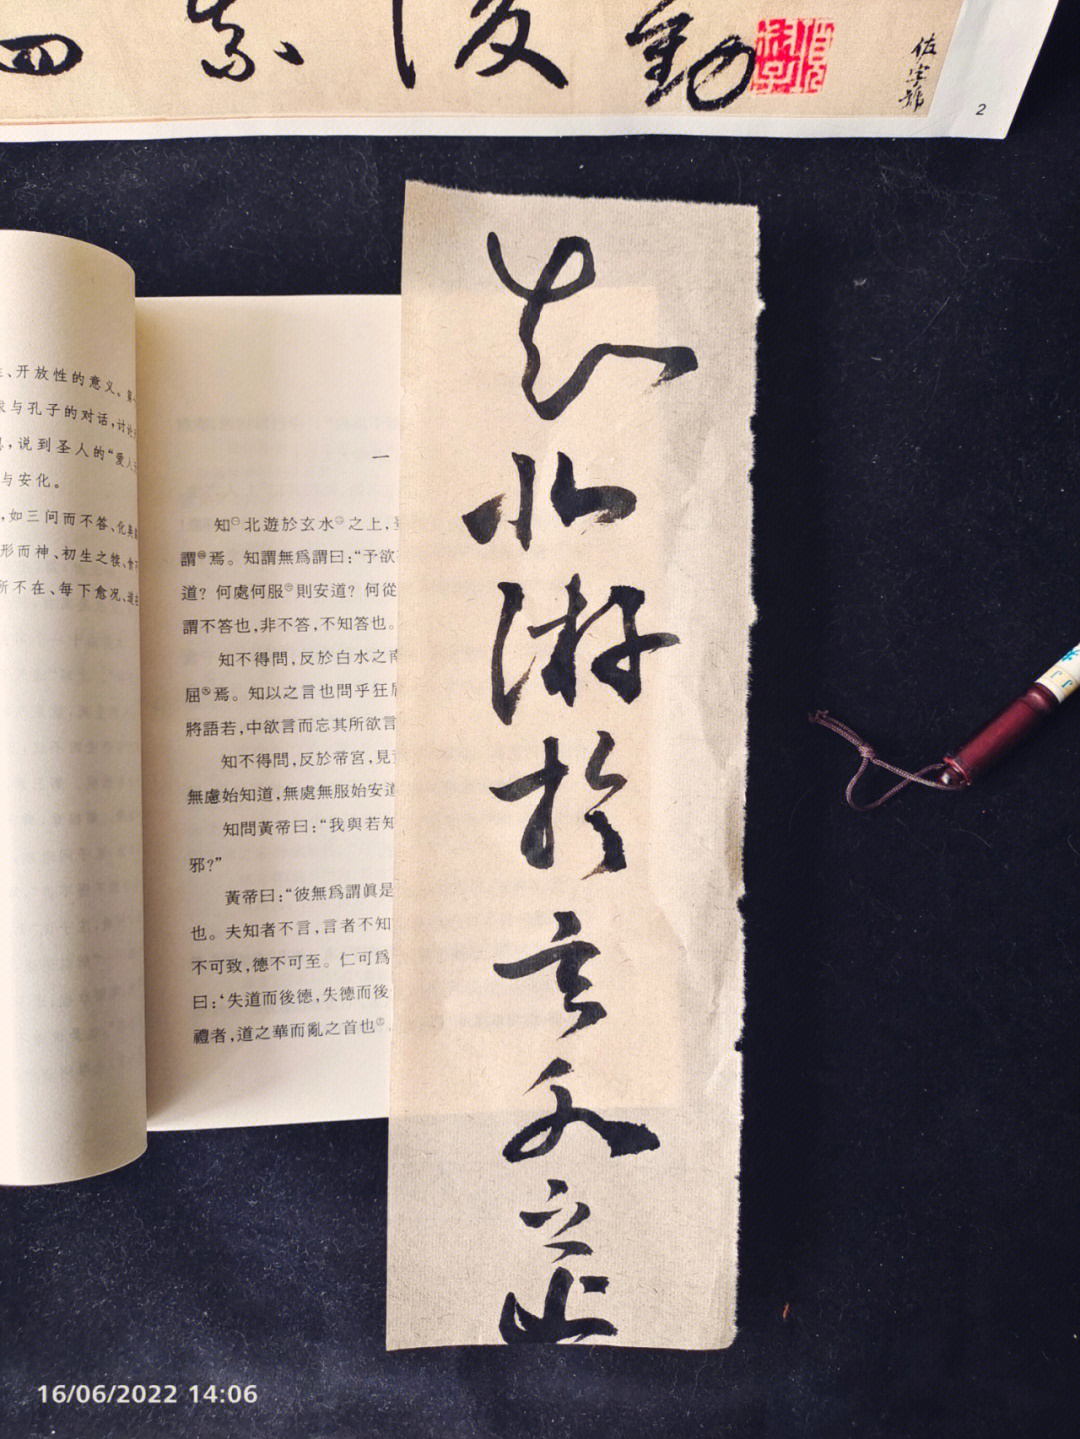 四 索 後 動
佐字號
2
、开放性的意义。第一
求与孔子的对话,讨论
,说到圣人的“爱人
与安化。
,如三问而不答、化臭腐
形而神、初生之犊、食
所不在、每下愈况、道
一
知㊀北遊於玄水㊁之上,
謂㊃焉。知謂無爲謂曰:“予欲
道?何處何服㊄則安道?何從
謂不答也,非不答,不知答也。
知不得問,反於白水之南
屈㊇焉。知以之言也問乎狂屈
將語若,中欲言而忘其所欲言
知不得問,反於帝宮,見黃
無慮始知道,無處無服始安道
知問黃帝曰:“我與若知
邪?”
黃帝曰:“彼無爲謂眞是
也。夫知者不言,言者不知
不可致,德不可至。仁可爲
曰:‘失道而後德,失德而後
禮者,道之華而亂之首也
知北游於玄水之上
16/06/2022 14:06